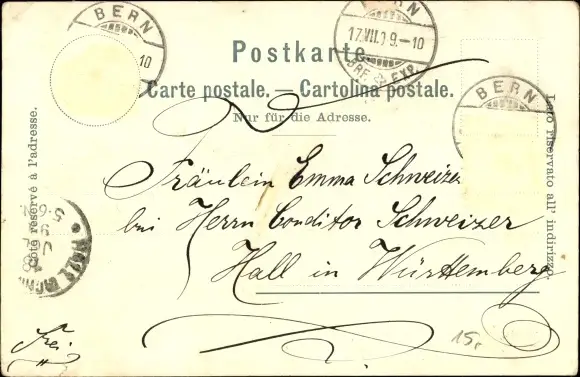 BERN
10
BERN
17.VII.09.-10
BRF. EXP.
BERN
Postkarte.
Carte postale. — Cartolina postale.
Nur für die Adresse.
Côté réservé à l'adresse.
Lato riservato all' indirizzo.
Fräulein Emma Schweizer
bei Herrn Conditor Schweizer
Hall in Württemberg
Frei
15.